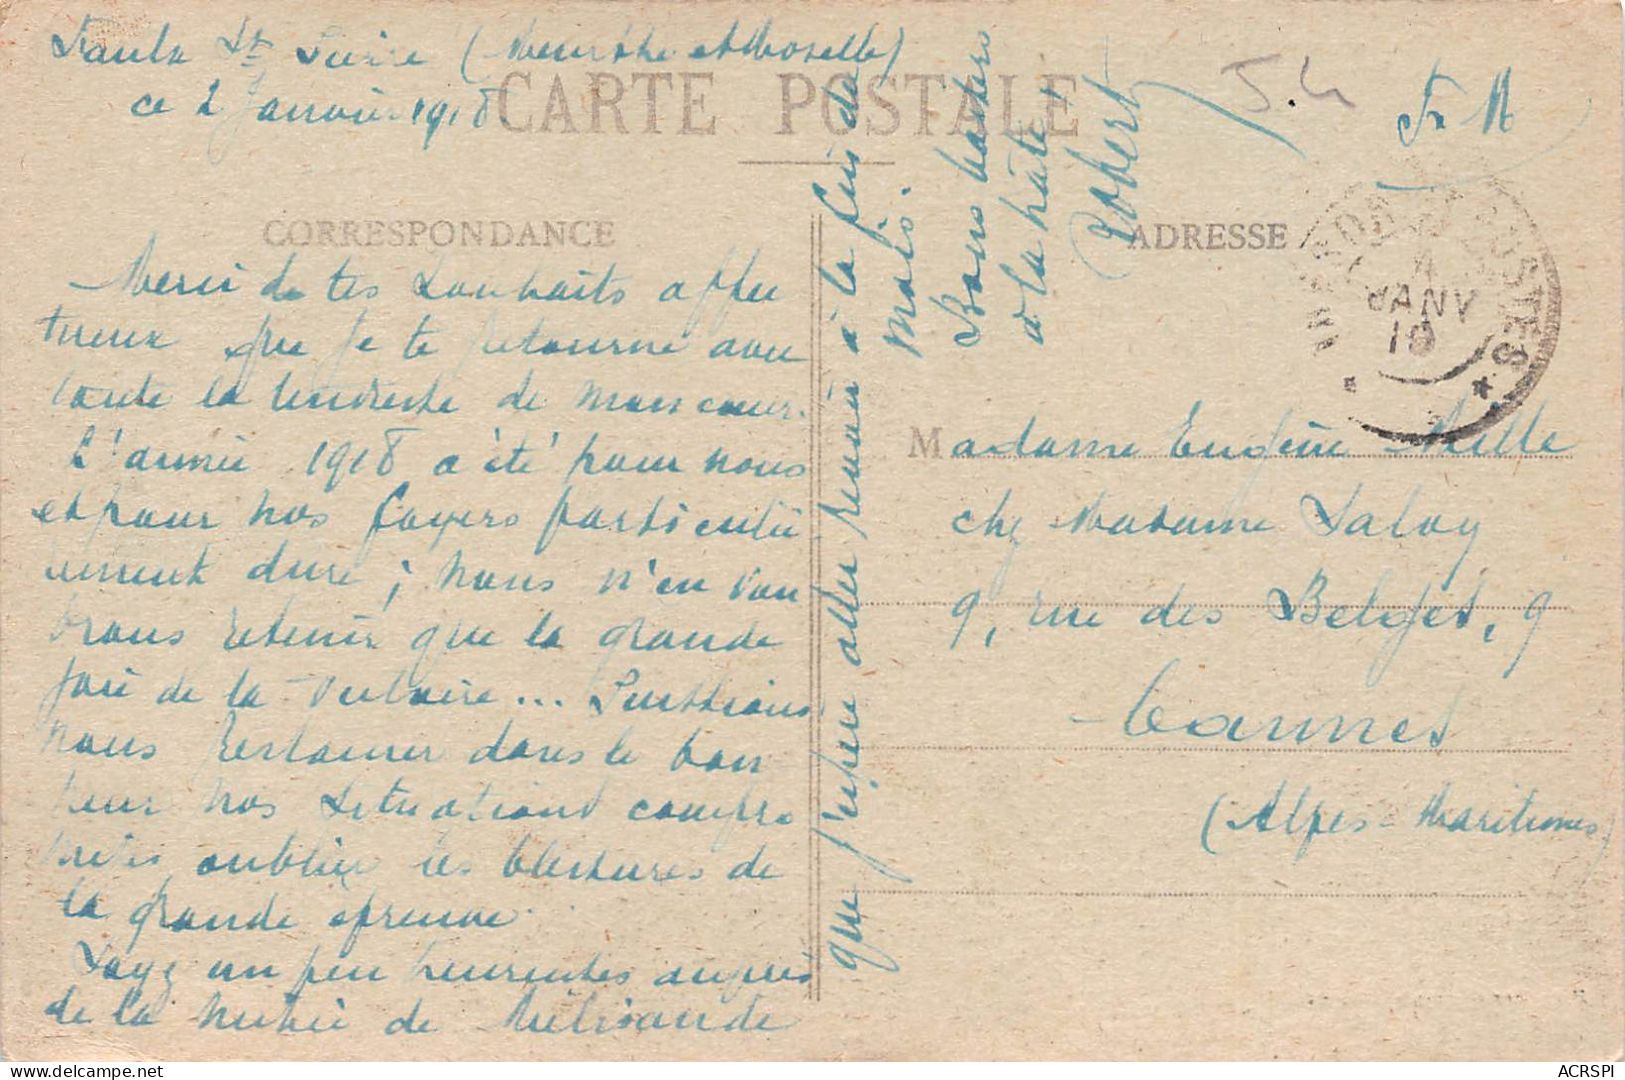 (Meurthe et Moselle)
ce 2 Janvier 1918
CARTE POSTALE
F. M
CORRESPONDANCE
ADRESSE
Merci de tes souhaits affec
tueux que je te retourne avec
toute la tendresse de mon coeur.
L'année 1918 a été pour nous
et pour nos foyers particuliè
rement dure; nous n'en vou
drons retenir que la grande
joie de la victoire... Puissions
nous restaurer dans le bon
heur nos situations compro
mises oublier les blessures de
la grande épreuve.
Soyez un peu heureuses auprès
de la de Mélisande
que j'espère aller revoir à la fin du
mois.
Bons baisers
à la hâte
Robert
JANV
POSTES
Madame Eugène Mille
chez Madame Laloy
9, rue des Belges, 9
Cannes
(Alpes-Maritimes)
ACRSPI